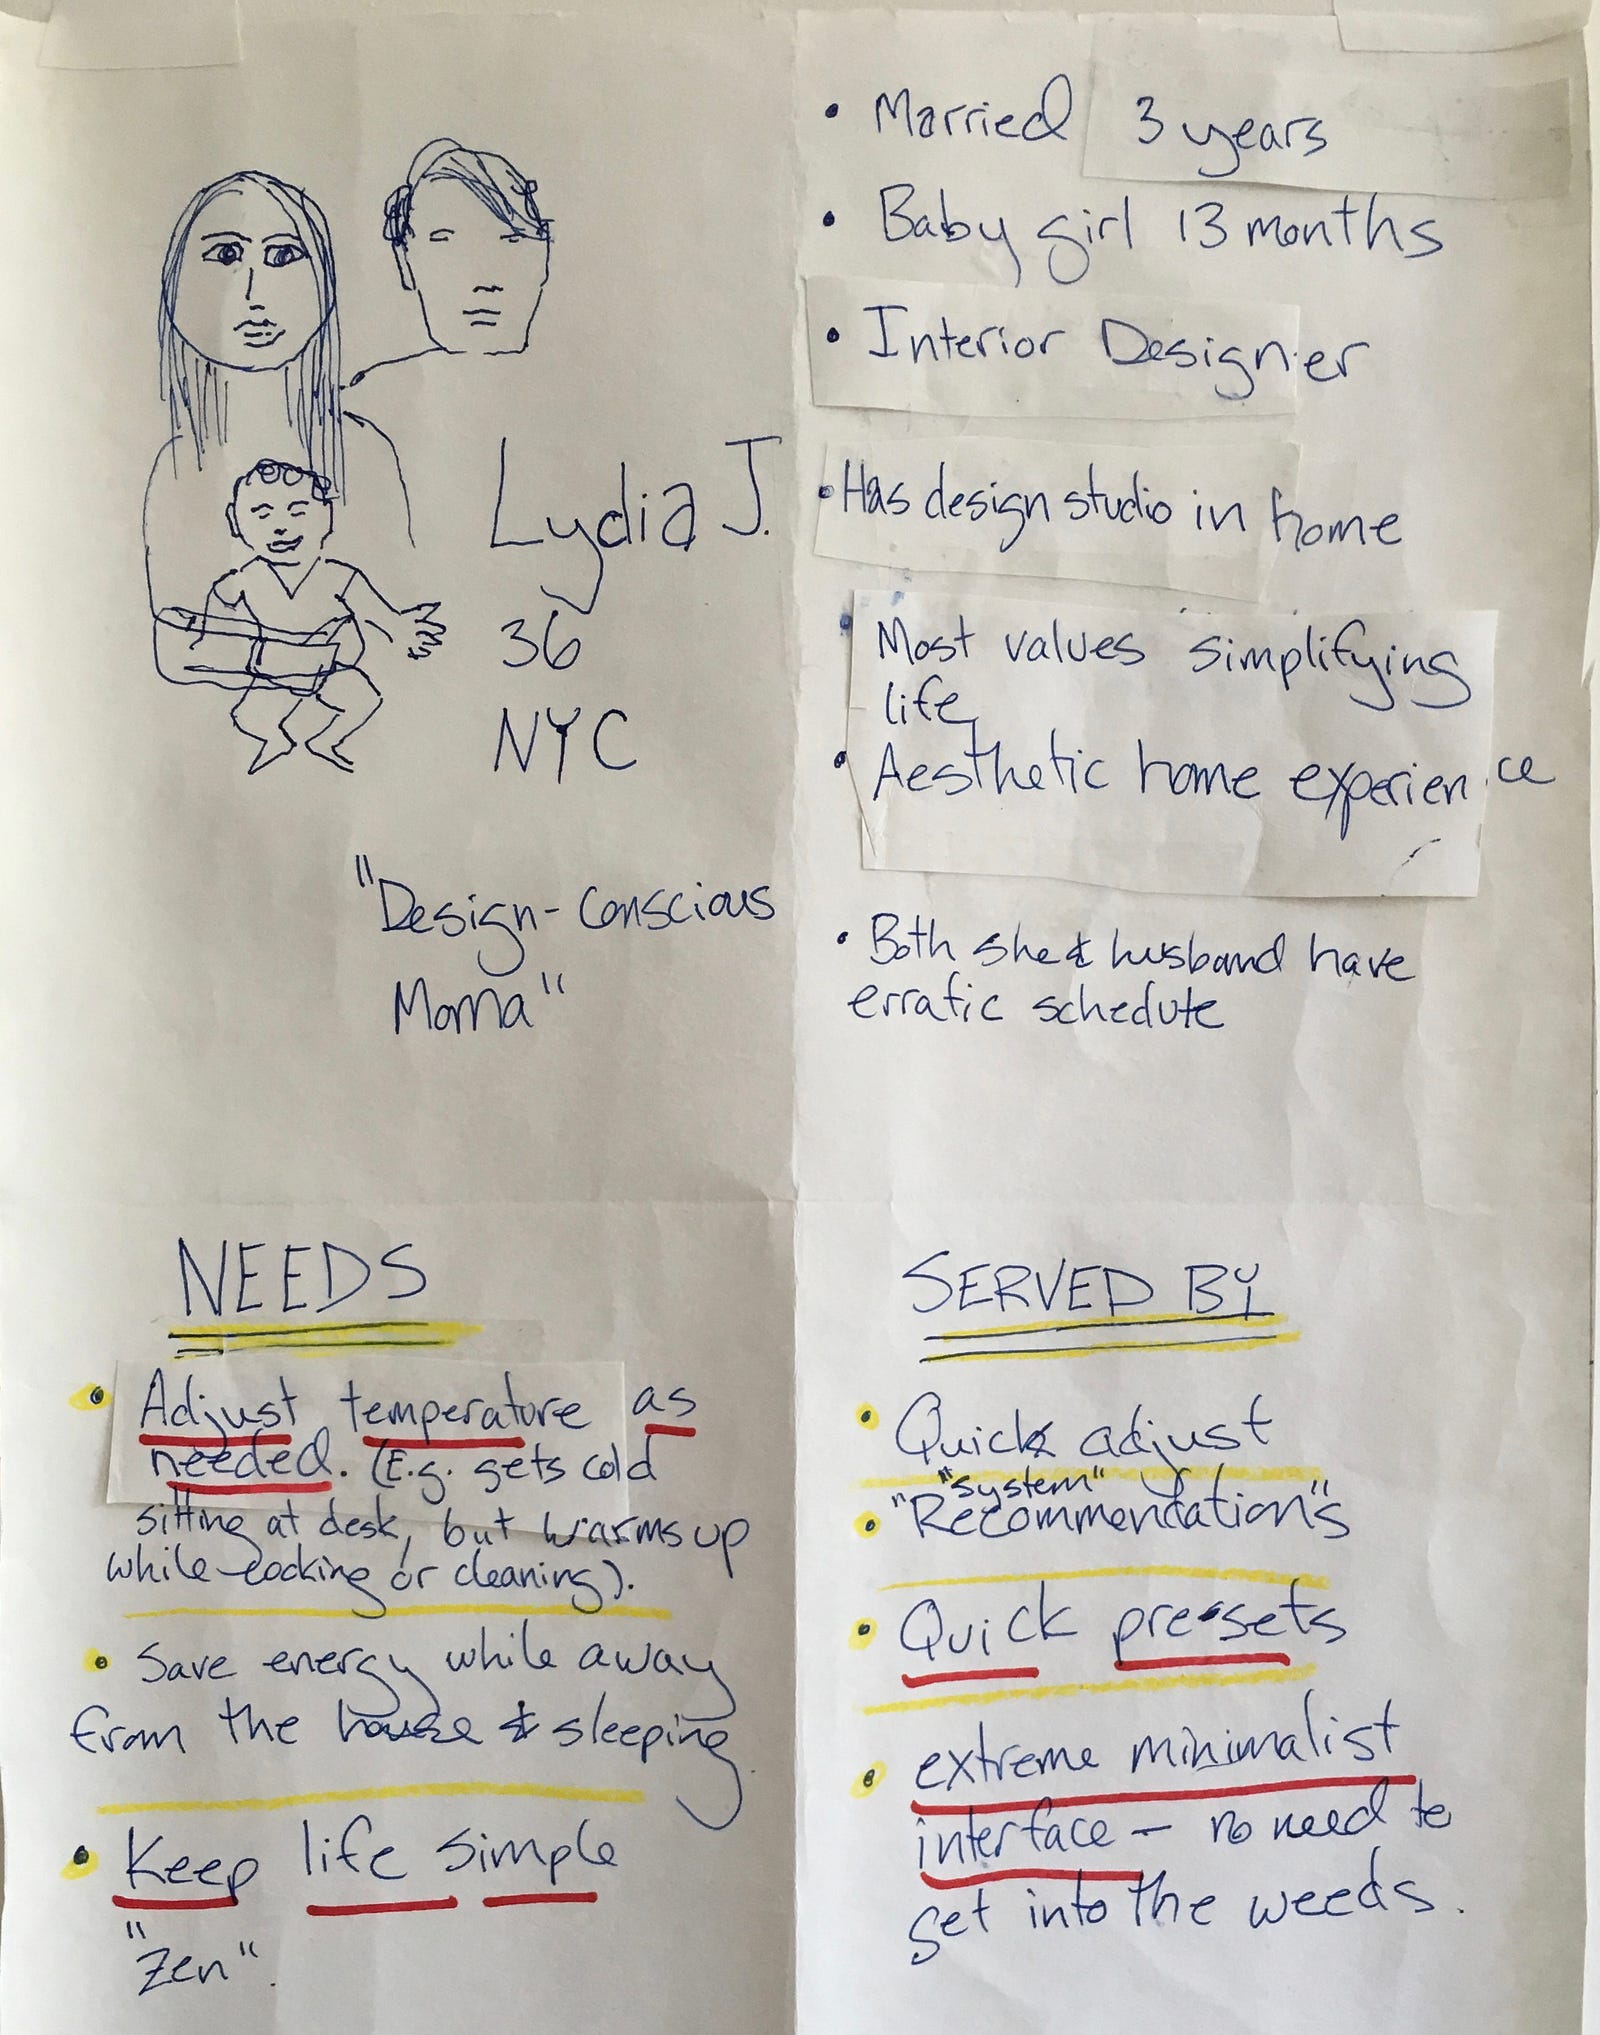 Lydia J.
36
NYC
"Design-Conscious
Moma"
• Married 3 years
• Baby girl 13 months
• Interior Designer
• Has design studio in home
• Most values simplifying
life,
• Aesthetic home experience
• Both she & husband have
erratic schedule
NEEDS
• Adjust temperature as
needed. (E.g. gets cold
sitting at desk, but warms up
while cooking or cleaning).
• Save energy while away
from the house & sleeping
• Keep life simple
"Zen".
SERVED BY
• Quick adjust
"system"
• "Recommendation"s
• Quick pre-sets
• extreme minimalist
interface – no need to
get into the weeds.